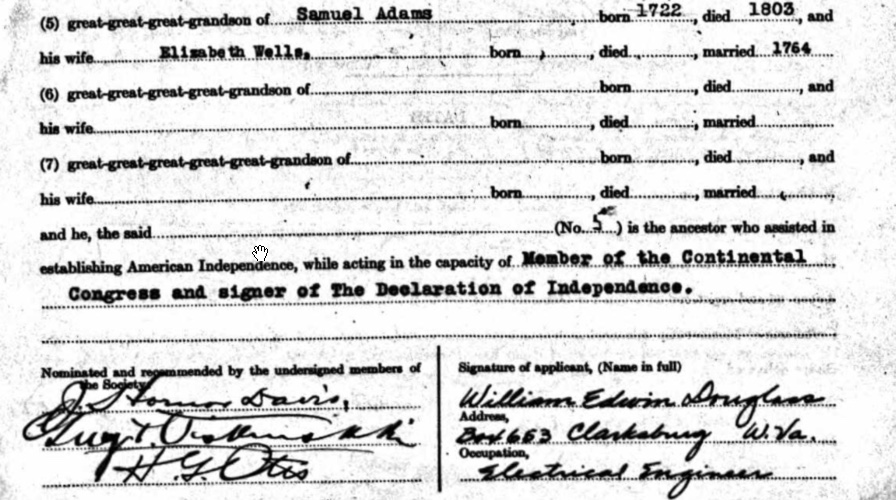 (5) great-great-great-grandson of Samuel Adams born 1722, died 1803, and
his wife Elizabeth Wells, born , died , married 1764
(6) great-great-great-great-grandson of born , died , and
his wife born , died , married
(7) great-great-great-great-great-grandson of born , died , and
his wife born , died , married
and he, the said (No. 5 ) is the ancestor who assisted in
establishing American Independence, while acting in the capacity of Member of the Continental
Congress and signer of The Declaration of Independence.
Nominated and recommended by the undersigned members of
the Society.
Davis,
H. G. Otis
Signature of applicant, (Name in full)
William Edwin Douglass
Address,
Box 653 Clarksburg W. Va.
Occupation,
Electrical Engineer